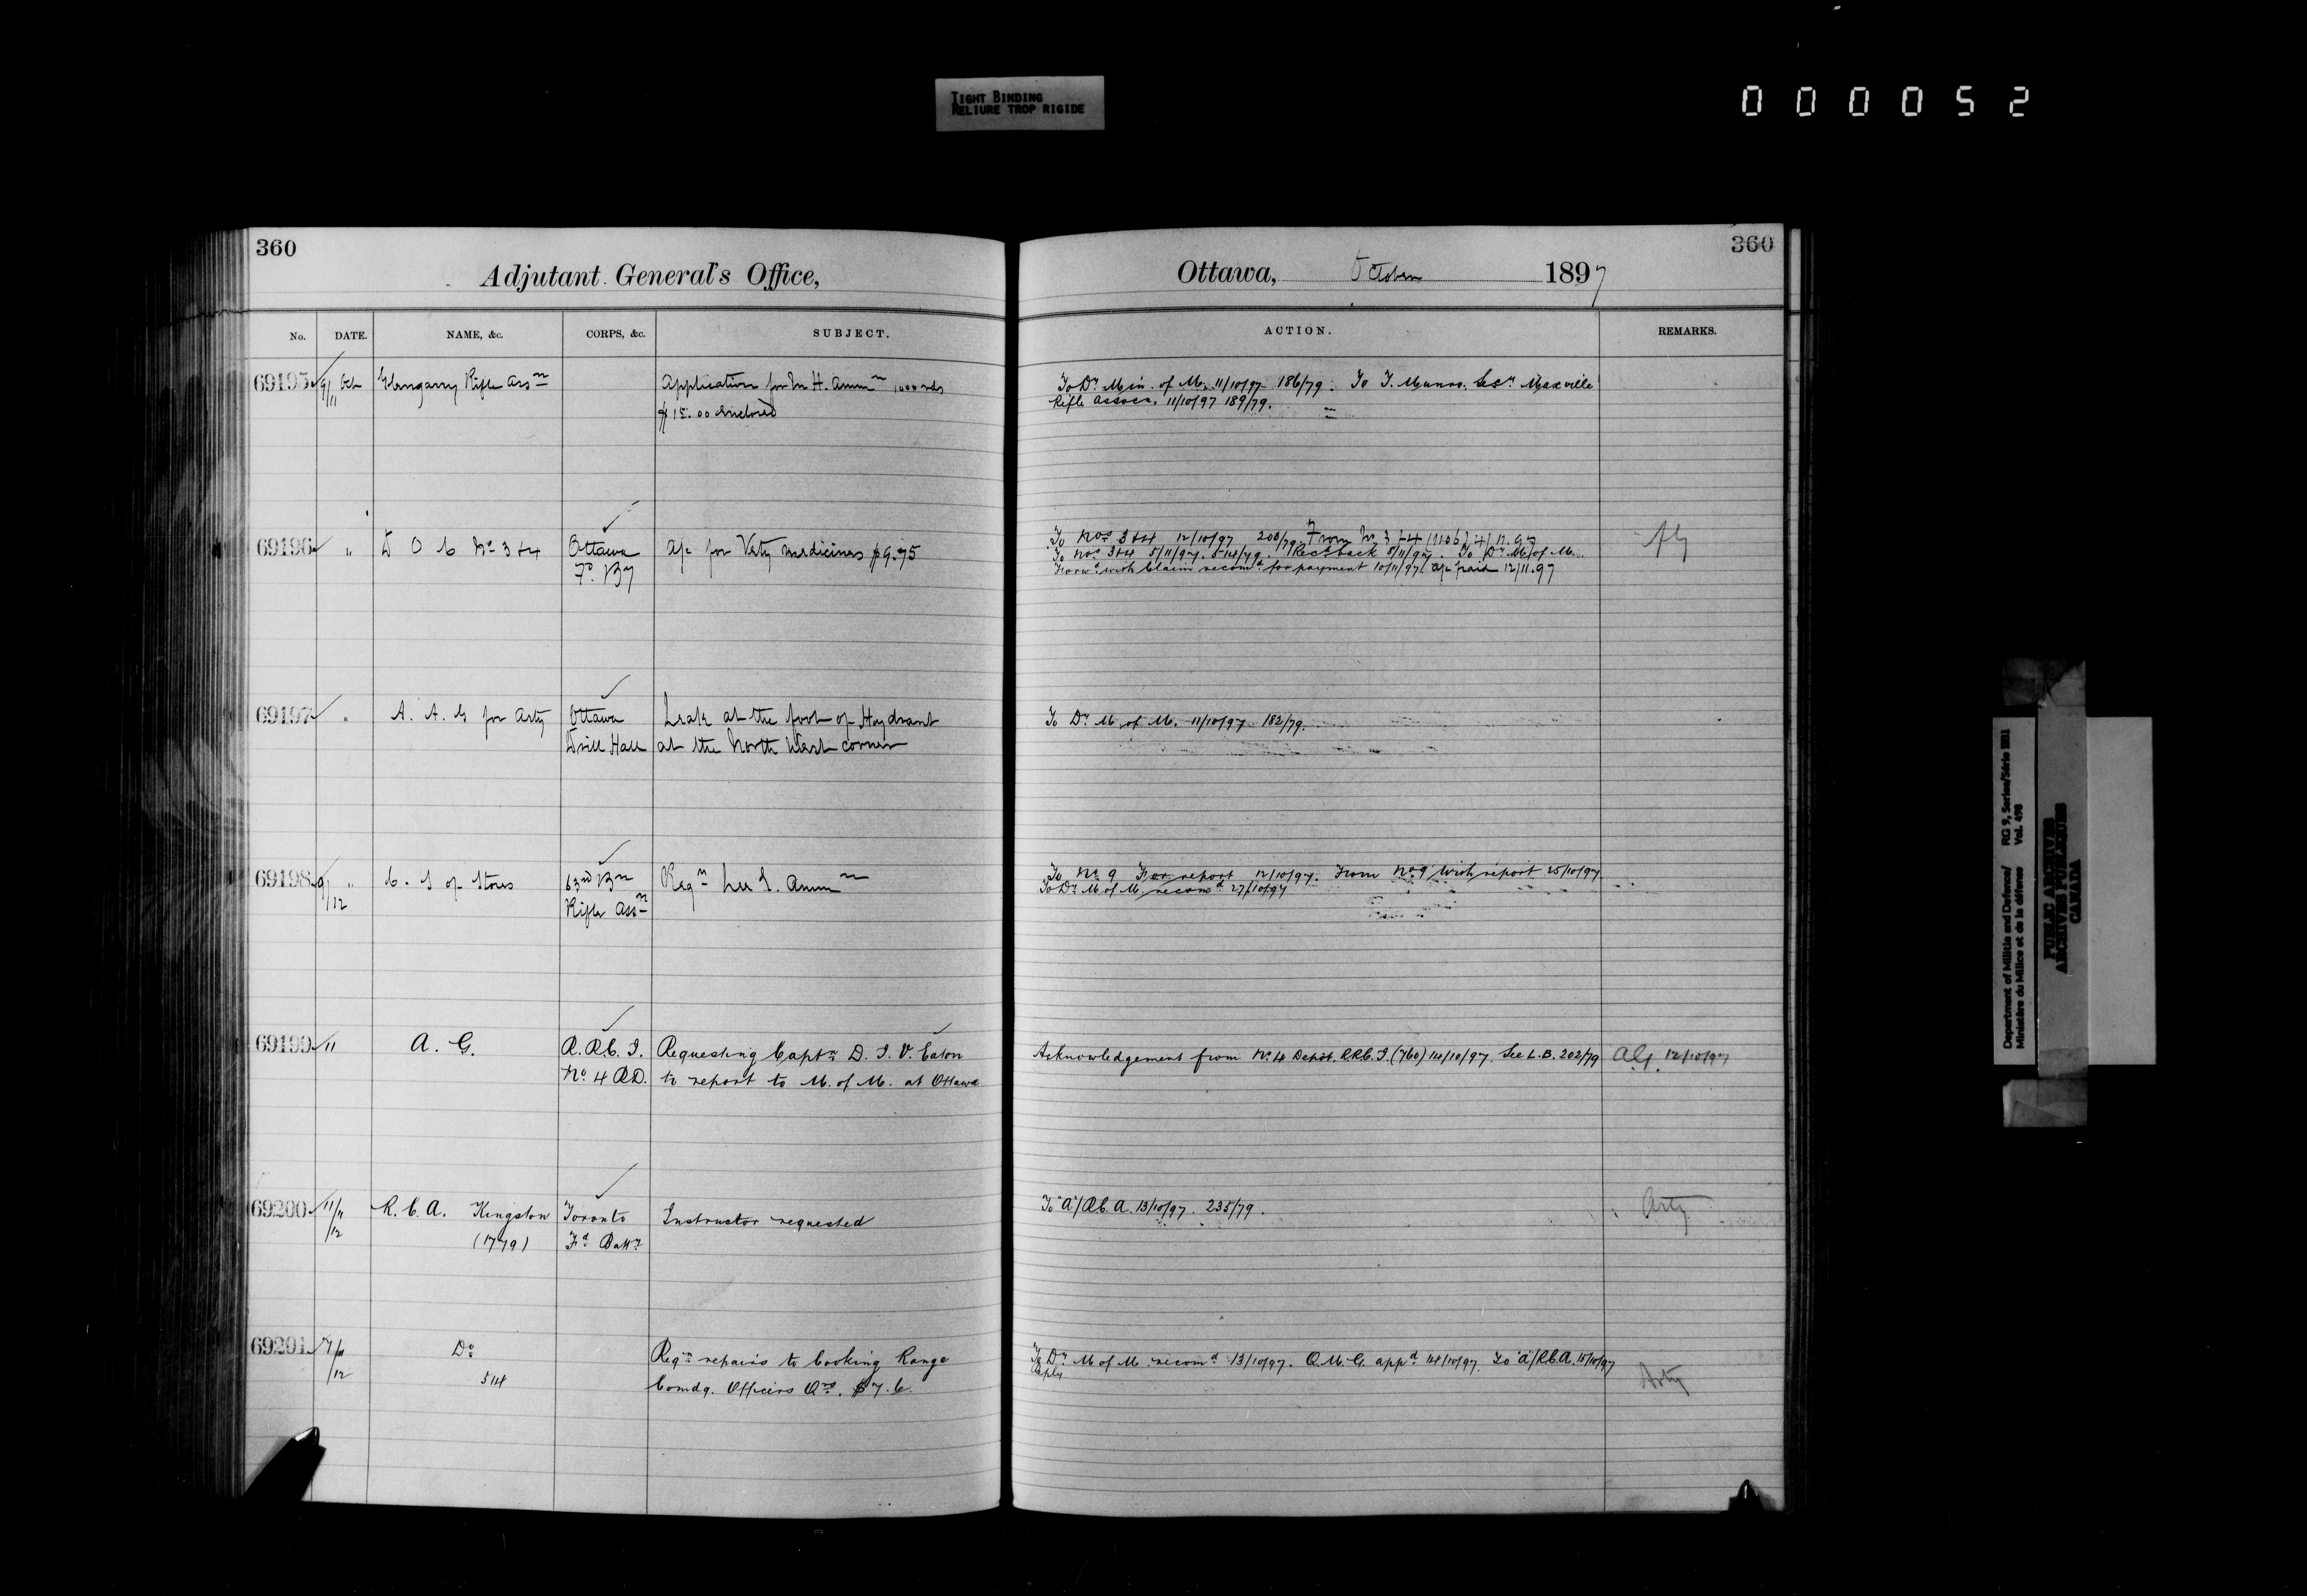 TIGHT BINDING
RELIURE TROP RIGIDE
000052
360
Adjutant General's Office,
No. DATE. NAME, &c. CORPS, &c. SUBJECT.
69195 9/11 Oct Glengarry Rifle Assn Application for M. H. Ammn 1000 rds
$15.00 enclosed
69196 " D O C No 3 & 4 Ottawa a/c for Vety medicines $9.75
Fd. By
69197 " A. A. G for Arty Ottawa Leak at the foot of Haydrant
Drill Hall at the North West corner
69198 9/12 " C. S of Stores 63rd Bn Reqn Lee E. Ammn
Rifle Assn
69199 11 A. G. R.R.C.I. Requesting Captn D. I. V. Eaton
No 4 R.D. to report to M. of M. at Ottawa
69200 11/12 R. C. A. Kingston Toronto Instructor requested
(1779) Fd Batty
69201 11/12 Do Reqn repairs to Cooking Range
514 Comdg. Officers Qrs. $7.
360
Ottawa, October 1897
ACTION. REMARKS.
To Dy Min. of M. 11/10/97 186/79. To J. Munro. Secy Maxville
Rifle Assocn. 11/10/97 189/79.
To Nos 3&4 12/10/97 200/79. From No 3&4 (1106) 4/11.97
To Nos 3&4 5/11/97. 514/79. Recd back 8/11/97. To Dy M. of M.
Forwd with Claim recomd for payment 10/11/97. a/c paid 12/11.97
To Dy M. of M. 11/10/97 182/79.
To No 9 For report 12/10/97. From No 9 with report 25/10/97.
To Dy M. of M. recomd 27/10/97
Acknowledgement from No. 4 Depôt. R.R.C.I. (760) 14/10/97. See L.B. 202/79 A.G. 12/10/97
To "A"/R.C.A. 13/10/97. 235/79. Arty
To Dy M of M. recomd 13/10/97. Q.M.G. appd 14/10/97. To "A"/R.C.A. 15/10/97
Arty
Department of Militia and Defence/ RG 9, Series/Série IIB1
Ministère du Milice et de la défence Vol. 498
PUBLIC ARCHIVES
ARCHIVES PUBLIQUES
CANADA